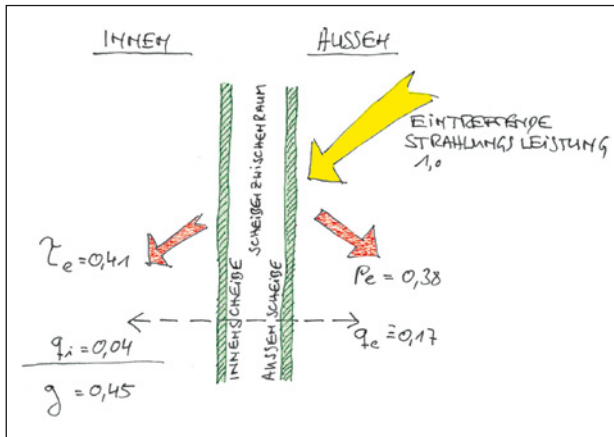 INNEN
AUSSEN
EINTREFFENDE
STRAHLUNGSLEISTUNG
1,0
SCHEIBENZWISCHENRAUM
INNENSCHEIBE
AUSSENSCHEIBE
τe = 0,41
ρe = 0,38
qi = 0,04
qe = 0,17
g = 0,45